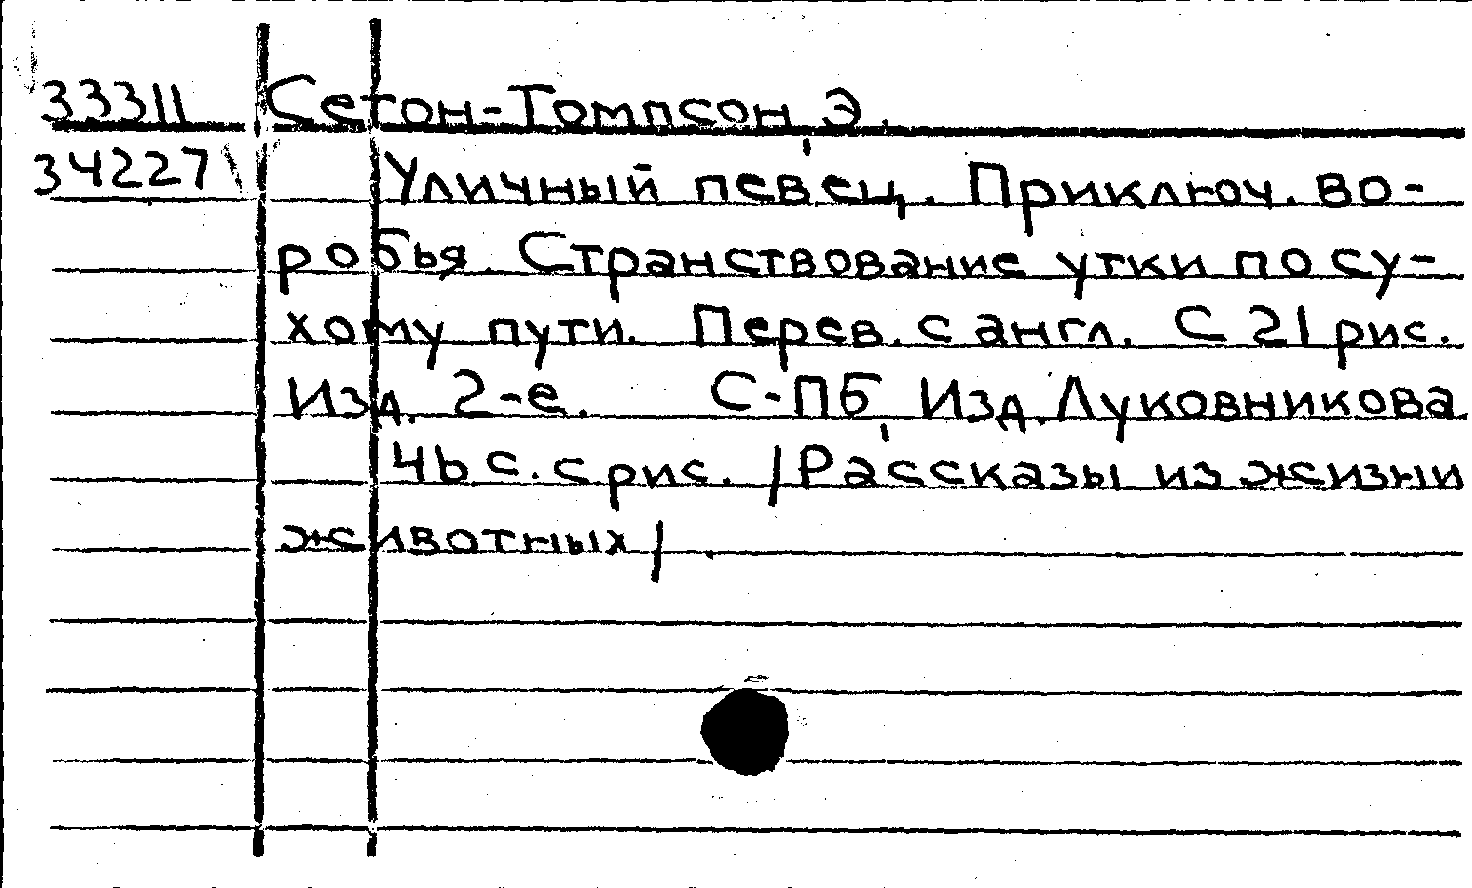 33311 Сетон-Томпсон, Э.
34227 Уличный певец. Приключ. во-
робья. Странствование утки по су-
хому пути. Перев. с англ. С 21 рис.
Изд. 2-е. С-ПБ, Изд. Луковникова
46 с. с рис. /Рассказы из жизни
животных/